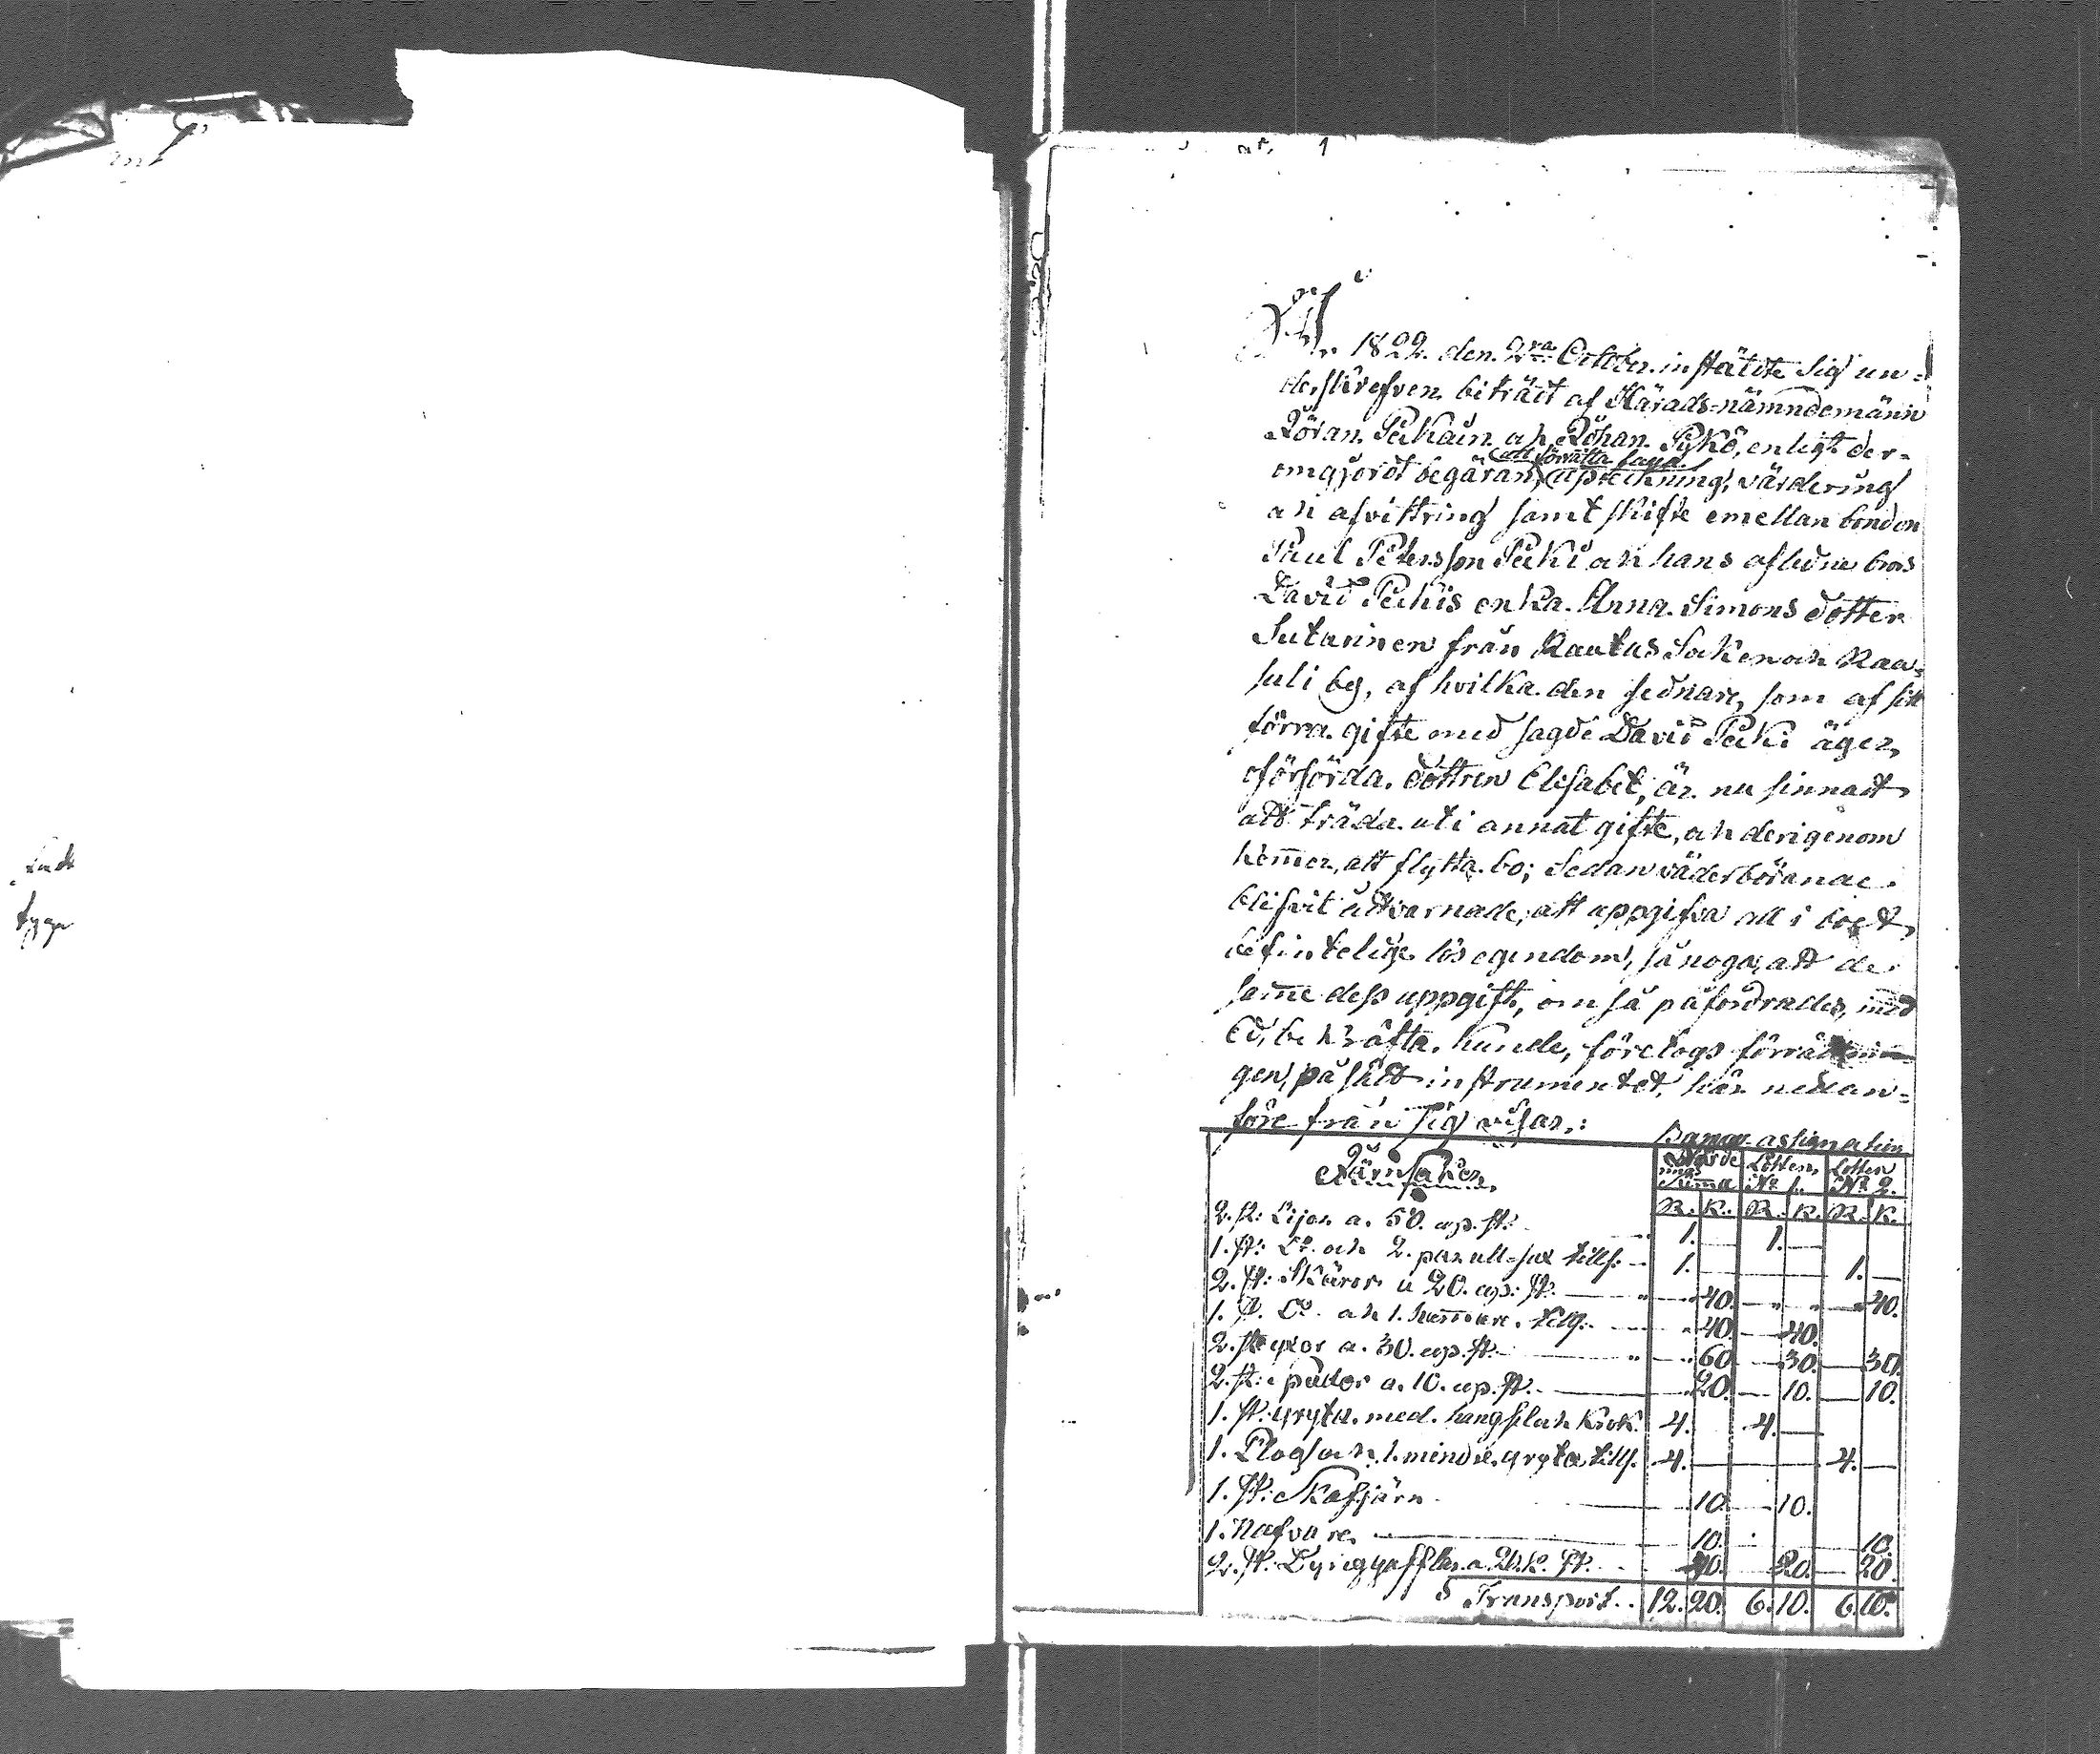 År 1822. den. 2ra October. instälte sig un=
derskrefven. biträdt af Härads=nämndemänn
Jöran. Peckain. och Johan. Pykö, enligt der-
att förrätta laga.
omgjordt begäran, uptekning, värdering
och afvittring samt skifte emellan bonden
Paul Petersson Pecki och hans aflidne bros
David Peckis enka. Anna. Simons dotter
Sutarinen från Rautus Soken och Raa=
suli by, af hvilka. den sednare, som af sitt
förra. gifte med sagde David Pecki äger,
oförsörda. dottren Elisabet, är. nu sinnadt
att träda. uti annat gifte, och derigenom
kommer, att flytta. bo; Sedan väderbörande.
blifvit utvarnade, att uppgifva all i boet,
befintelige lös egendom, så noga, att de
samme dess uppgift, om så påfordrades, med
Ed, be kräfta. kunde, företogs förrättnin-
gen, på sätt instrumentet. här nedan=
före från sig visar.:
Banco assignation
Järnsaker. Värde rings Summa Lotten, No 1. Lotten No 2.
R. K. R. K. R. K.
2. st: Lijor a. 50. cop. st: 1. 1.
1. st: Do. och 2. par ull-sax tills: 1. 1.
2. st: Skäror a 20. cop: st. 40. 40.
1. st. Do. och 1. hammare. tills. 40. 40.
2. st yxor a. 30. cop. st. 60. 30. 30.
2. st: spador a. 10. cop. st. 20. 10. 10.
1. st: gryta. med. hängsel och krok. 4. 4.
1. Plog och 1. mindre. gryta tills. 4. 4.
1. st: Skafjärn 10. 10.
1. Nafvare. 10. 10.
2. st: Dyneggafflar. a 20. k. st. 40. 20. 20.
Transport.. 12. 20. 6. 10. 6. 10.